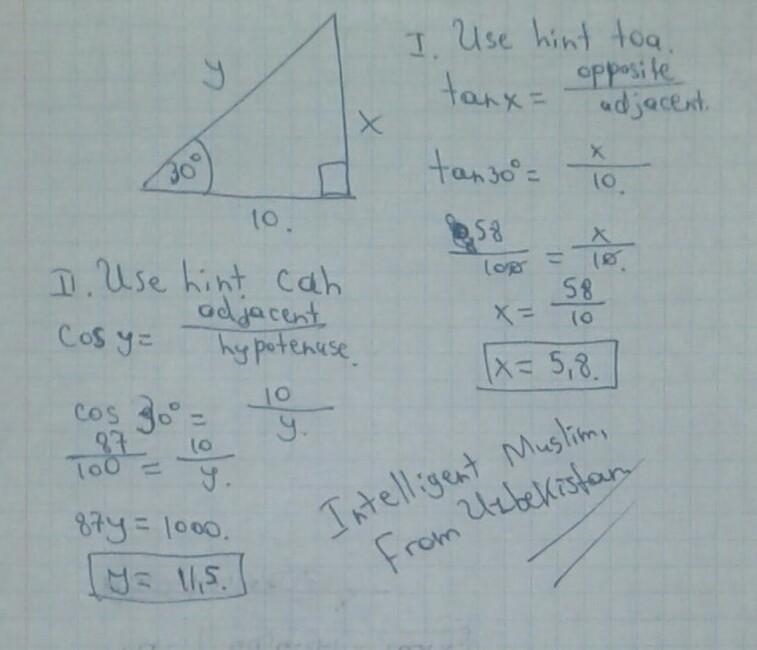 y
30°
x
10.
I. Use hint toa.
tanx = opposite / adjacent.
tan30° = x / 10.
58 / 100 = x / 10.
x = 58 / 10
x = 5,8.
II. Use hint cah
Cos y = adjacent / hypotenuse.
cos 30° = 10 / y.
87 / 100 = 10 / y.
87y = 1000.
y = 11,5.
Intelligent Muslim,
From Uzbekistan